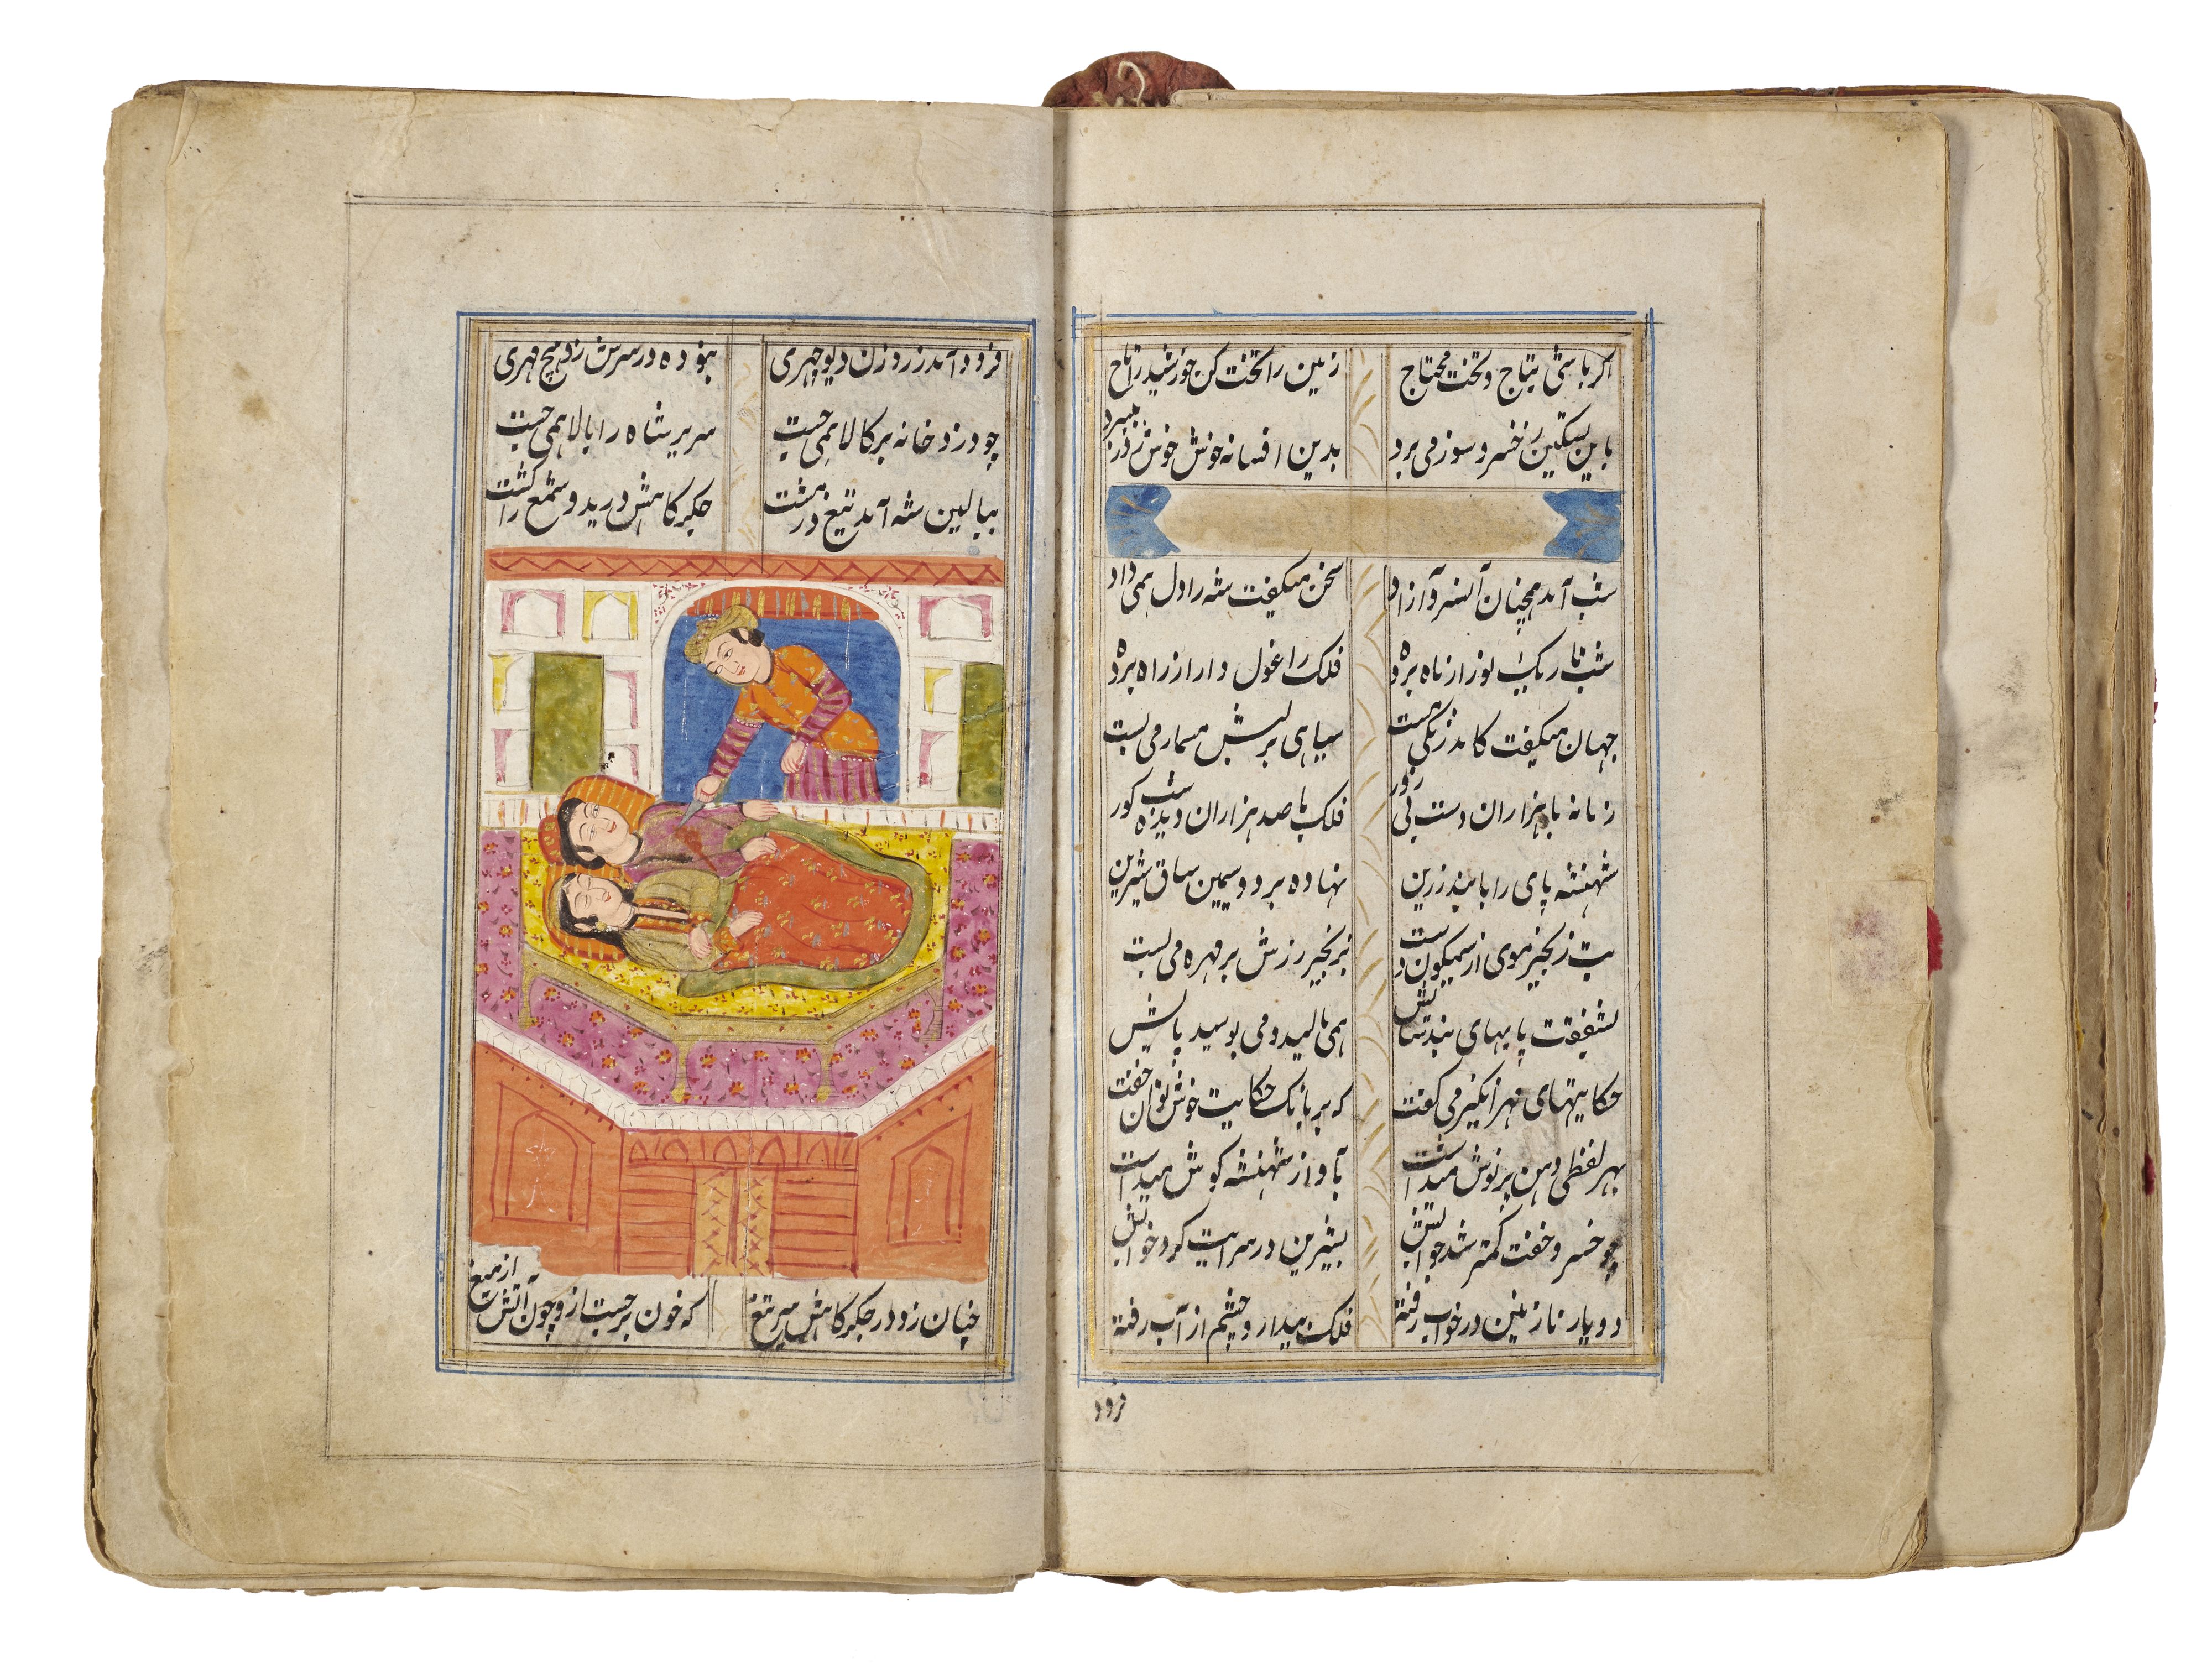 اکر باشی بتاج وتخت محتاج زمین را تخت کن خورشید را تاج
باین تسکین ز خسرو سوز می برد بدین افسانه خوش خوش
شب آمد همچنان آن سرو آزاد سخن میکفت شه را دل همی داد
شب تاریک نور از ماه برده فلک را غول دار از راه برده
جهان میکفت کامد زنکی مست سیاهی بر لبش مسمار می بست
زمانه با هزاران دست بی زور فلک با صد هزاران دیده شب کور
شهنشه پای را با بند زرین نهاده بر دو سیمین ساق شیرین
بت زنجیر موی از سیمکون دست بزنجیر زرش بر مهره می بست
بشفقت پایهای بند سایش همی مالید و می بوسید پایش
حکایتهای مهر انکیز می کفت که بر بانک حکایت خوش توان خفت
بهر لفظی دهن پر نوش میداشت بآواز شهنشه کوش میداشت
چو خسرو خفت کمتر شد جوابش بشیرین در سرایت کرد خوابش
دو یار نازنین در خواب رفته فلک بیدار و چشم از آب رفته
فرود
فرود آمد ز روزن دیو چهری نبوده در سرش زد هیچ مهری
چو دزد خانه بر کالا همی جست سریر شاه را بالا همی جست
ببالین شه آمد تیغ در مشت جکر کاهش درید و شمع را کشت
چنان زد در جکر کاهش سر تیغ که خون برجست ازو چون آتش از میغ